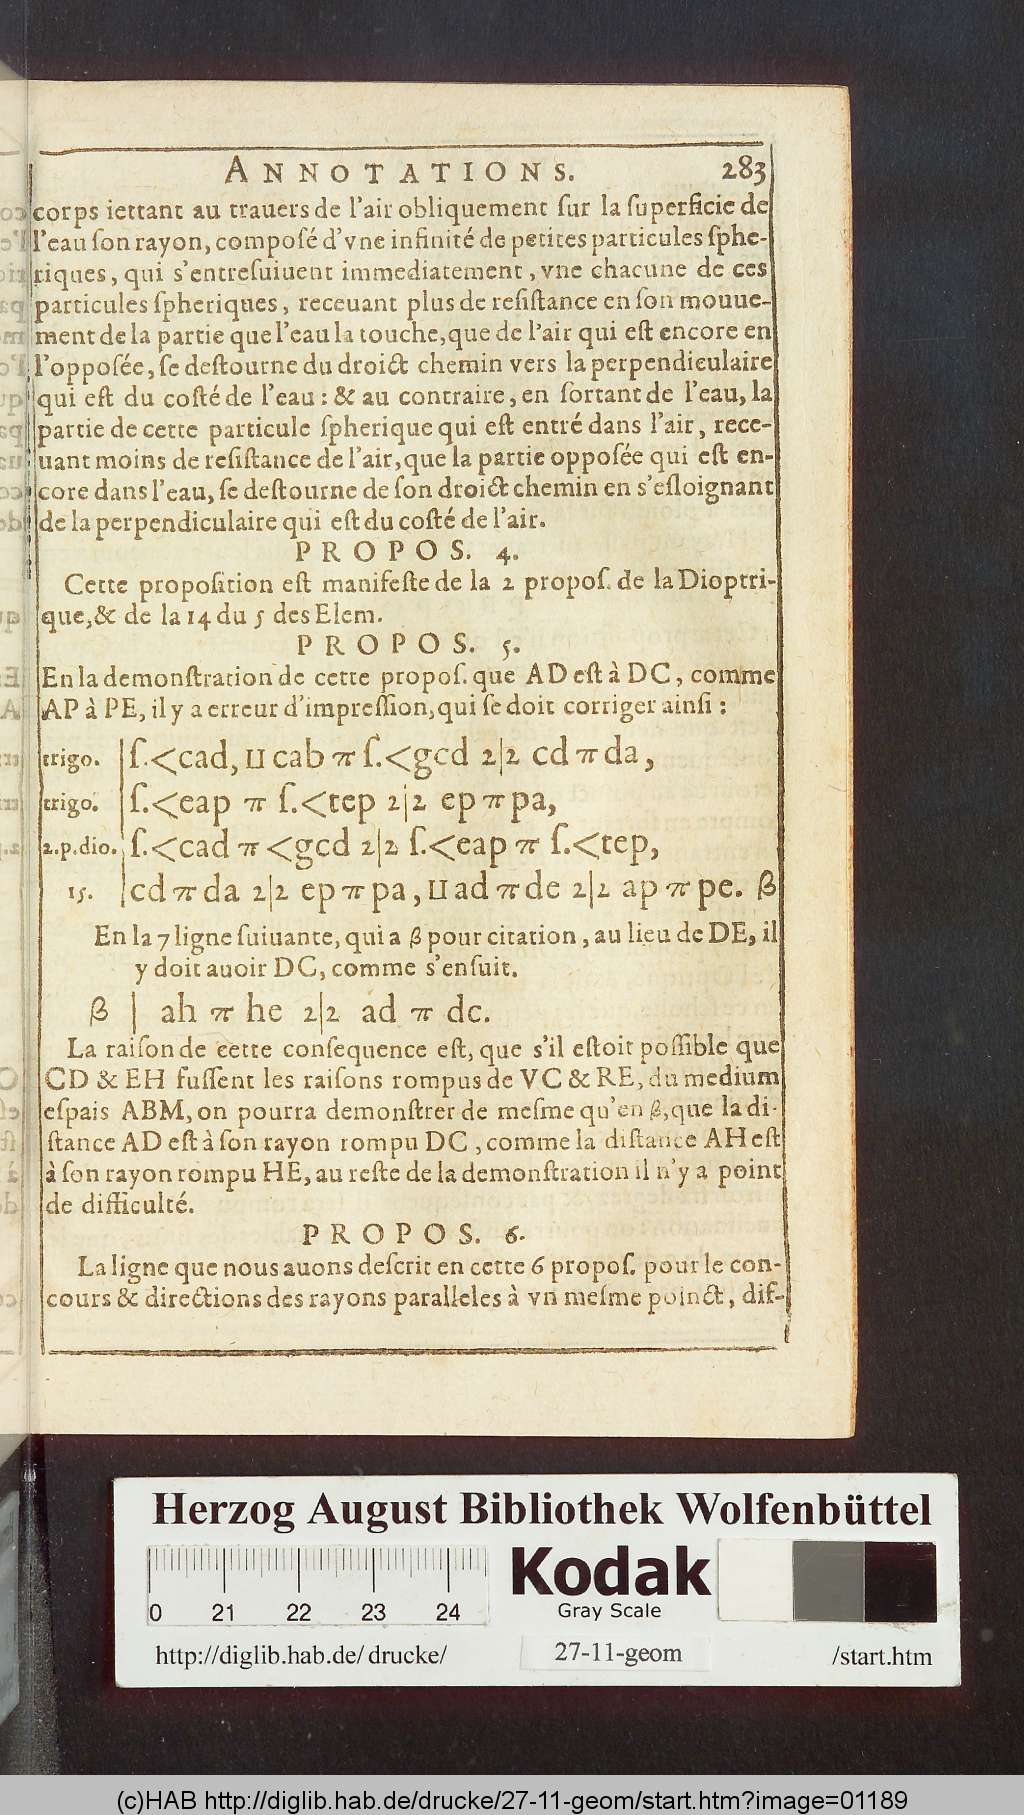 ANNOTATIONS. 283
corps iettant au trauers de l'air obliquement ſur la ſuperficie de
l'eau ſon rayon, compoſé d'vne infinité de petites particules ſphe-
riques, qui s'entreſuiuent immediatement, vne chacune de ces
particules ſpheriques, receuant plus de reſiſtance en ſon mouue-
ment de la partie que l'eau la touche, que de l'air qui eſt encore en
l'oppoſée, ſe deſtourne du droict chemin vers la perpendiculaire
qui eſt du coſté de l'eau: & au contraire, en ſortant de l'eau, la
partie de cette particule ſpherique qui eſt entré dans l'air, rece-
uant moins de reſiſtance de l'air, que la partie oppoſée qui eſt en-
core dans l'eau, ſe deſtourne de ſon droict chemin en s'eſloignant
de la perpendiculaire qui eſt du coſté de l'air.
PROPOS. 4.
Cette propoſition eſt manifeſte de la 2 propoſ. de la Dioptri-
que, & de la 14 du 5 des Elem.
PROPOS. 5.
En la demonſtration de cette propoſ. que AD eſt à DC, comme
AP à PE, il y a erreur d'impreſſion, qui ſe doit corriger ainſi:
trigo. | ſ.<cad, ⊔ cab π ſ.<gcd 2|2 cd π da,
trigo. | ſ.<eap π ſ.<tep 2|2 ep π pa,
2.p.dio. | ſ.<cad π <gcd 2|2 ſ.<eap π ſ.<tep,
15. | cd π da 2|2 ep π pa, ⊔ ad π de 2|2 ap π pe. β
En la 7 ligne ſuiuante, qui a β pour citation, au lieu de DE, il
y doit auoir DC, comme s'enſuit.
β | ah π he 2|2 ad π dc.
La raiſon de cette conſequence eſt, que s'il eſtoit poſſible que
CD & EH fuſſent les raiſons rompus de VC & RE, du medium
eſpais ABM, on pourra demonſtrer de meſme qu'en β, que la di-
ſtance AD eſt à ſon rayon rompu DC, comme la diſtance AH eſt
à ſon rayon rompu HE, au reſte de la demonſtration il n'y a point
de difficulté.
PROPOS. 6.
La ligne que nous auons deſcrit en cette 6 propoſ. pour le con-
cours & directions des rayons paralleles à vn meſme poinct, dif-
Herzog August Bibliothek Wolfenbüttel
0 21 22 23 24
Kodak
Gray Scale
http://diglib.hab.de/drucke/ 27-11-geom /start.htm
(c)HAB http://diglib.hab.de/drucke/27-11-geom/start.htm?image=01189